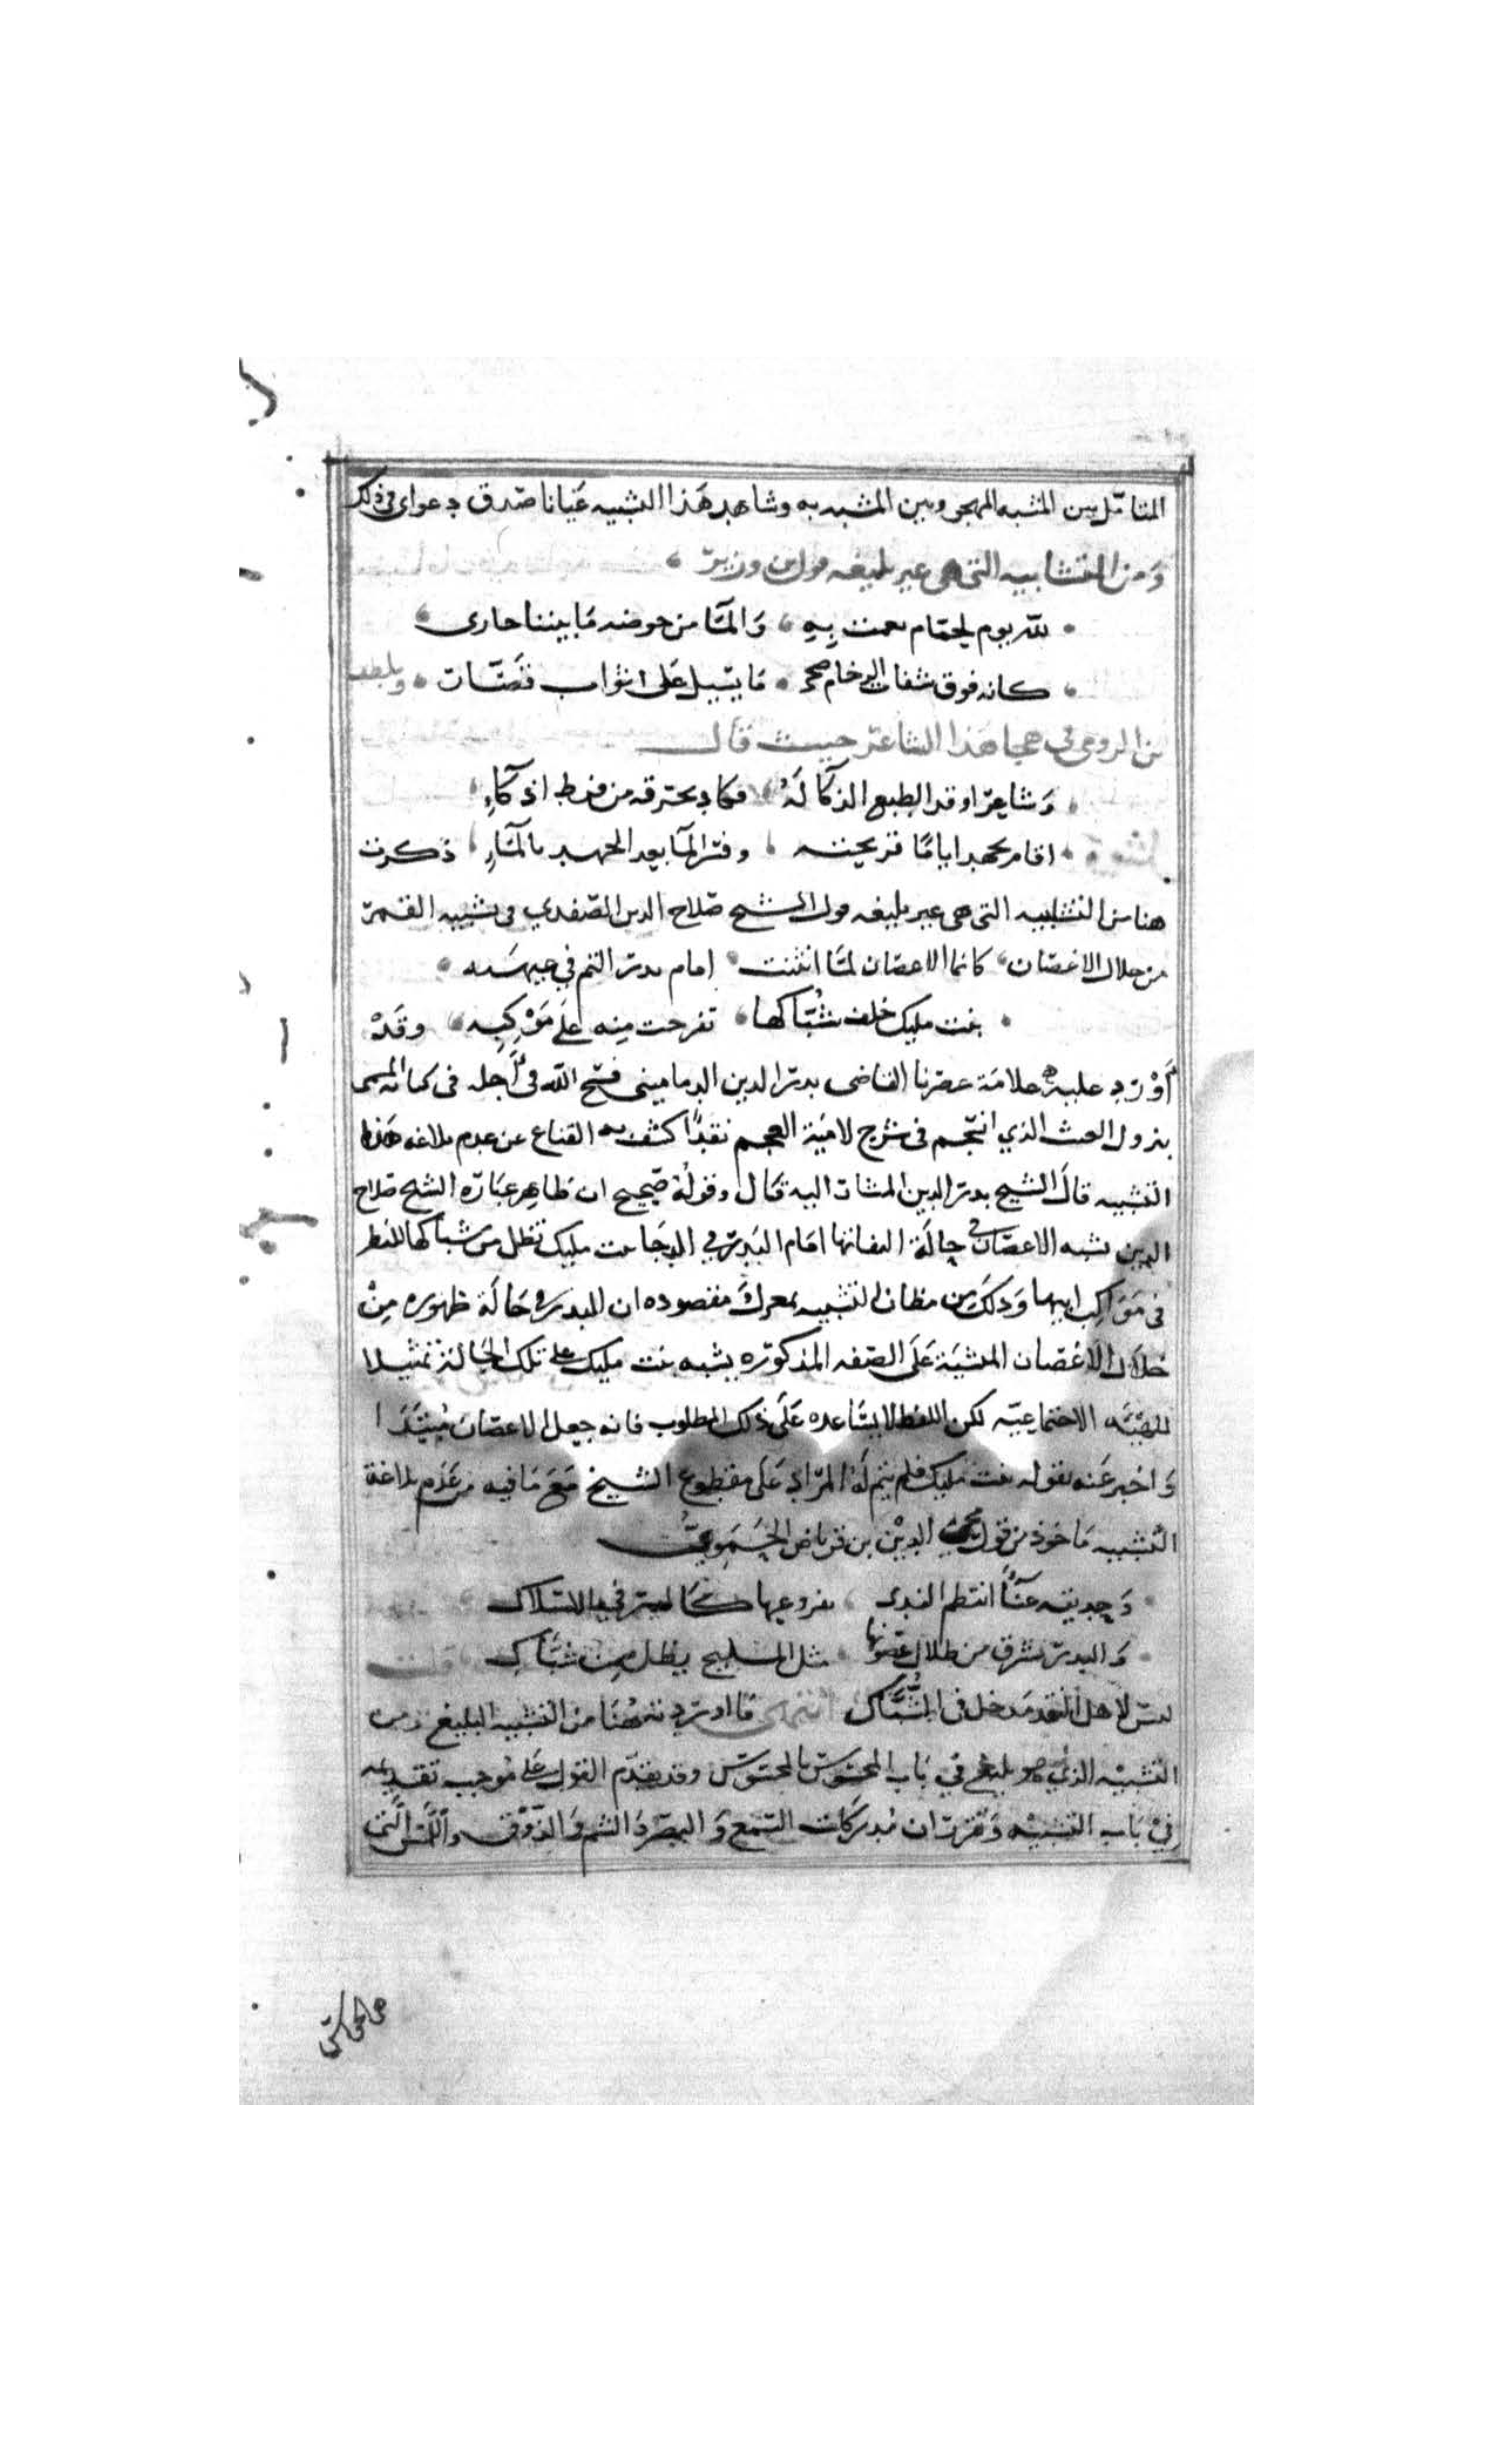 المتامل بين المشبه المهجو وبين المشبه به وشاهد هذا التشبيه عيانا صدق دعواى فى ذلك
ومن التشابيه التى هى غير بليغه قول بن وزير
لله يوم بحمام نعمت به والما من حوضه ما بيننا جارى
كانه فوق شفات الرخام ضحى ما يسيل على اثواب قصات وبلطف
بن الرومى فى هجا هذا الشاعر حيث قال
وشاعر اوقد الطبع الذكا له فكاد يحترقه من فرط اذكاء
اقام يجهد اياما قريحته وفسر الما بعد الجهد بالماء ذكرت
هنا من التشابيه التى هى غير بليغه قول الشيخ صلاح الدين الصفدي فى تشبيه القمر
من خلال الاغصان كانما الاغصان لما انثنت امام بدر التم في غيهبه
بنت مليك خلف شباكها تفرجت منه على موكبه وقد
أورد عليه علامة عصرنا القاضى بدر الدين الدمامينى فسح الله فى أجله فى كتابه المسمى
بنزول الغيث الذي انسجم فى شرح لامية العجم نقدا كشف به القناع عن عدم بلاغه هذا
التشبيه قال الشيخ بدر الدين المشار اليه قال وقوله صحيح ان ظاهر عبارة الشيخ صلاح
الدين تشبه الاغصان فى حالة امام البدر في الدجا بنت مليك تطل من شباكها للنظر
فى مواكب ابيها وذلك من مظان التشبيه بمعزل مقصوده ان البدر فى حالة ظهوره من
خلال الاغصان المنثنية على الصفه المذكوره يشبه بنت مليك على تلك الحالة تمثيلا
للهيئة الاجتماعيه لكن اللفظ لا يساعده على ذلك المطلوب فانه جعل الاغصان مبتدا
واخبر عنه بقوله بنت مليك فلم يتم له المراد على مقطوع الشيخ مع ما فيه من عدم بلاغة
التشبيه ماخوذ من قول محيى الدين بن قرناص الحموى
وحديقه غنا انتظم الندى بفروعها كالدر في الاسلاك
والبدر يشرق من خلال غصونها مثل المليح يطل من شباك قلت
ليس لاهل النقد مدخل فى الشباك انتهى ما اوردته هنا من التشبيه البليغ ومن
التشبيه الذي هو بليغ في باب المحسوس بالمحسوس وقد تقدم القول على موجب تقديمه
في باب التشبيه وتقرر ان مدركات السمع والبصر والشم والذوق واللمس التى